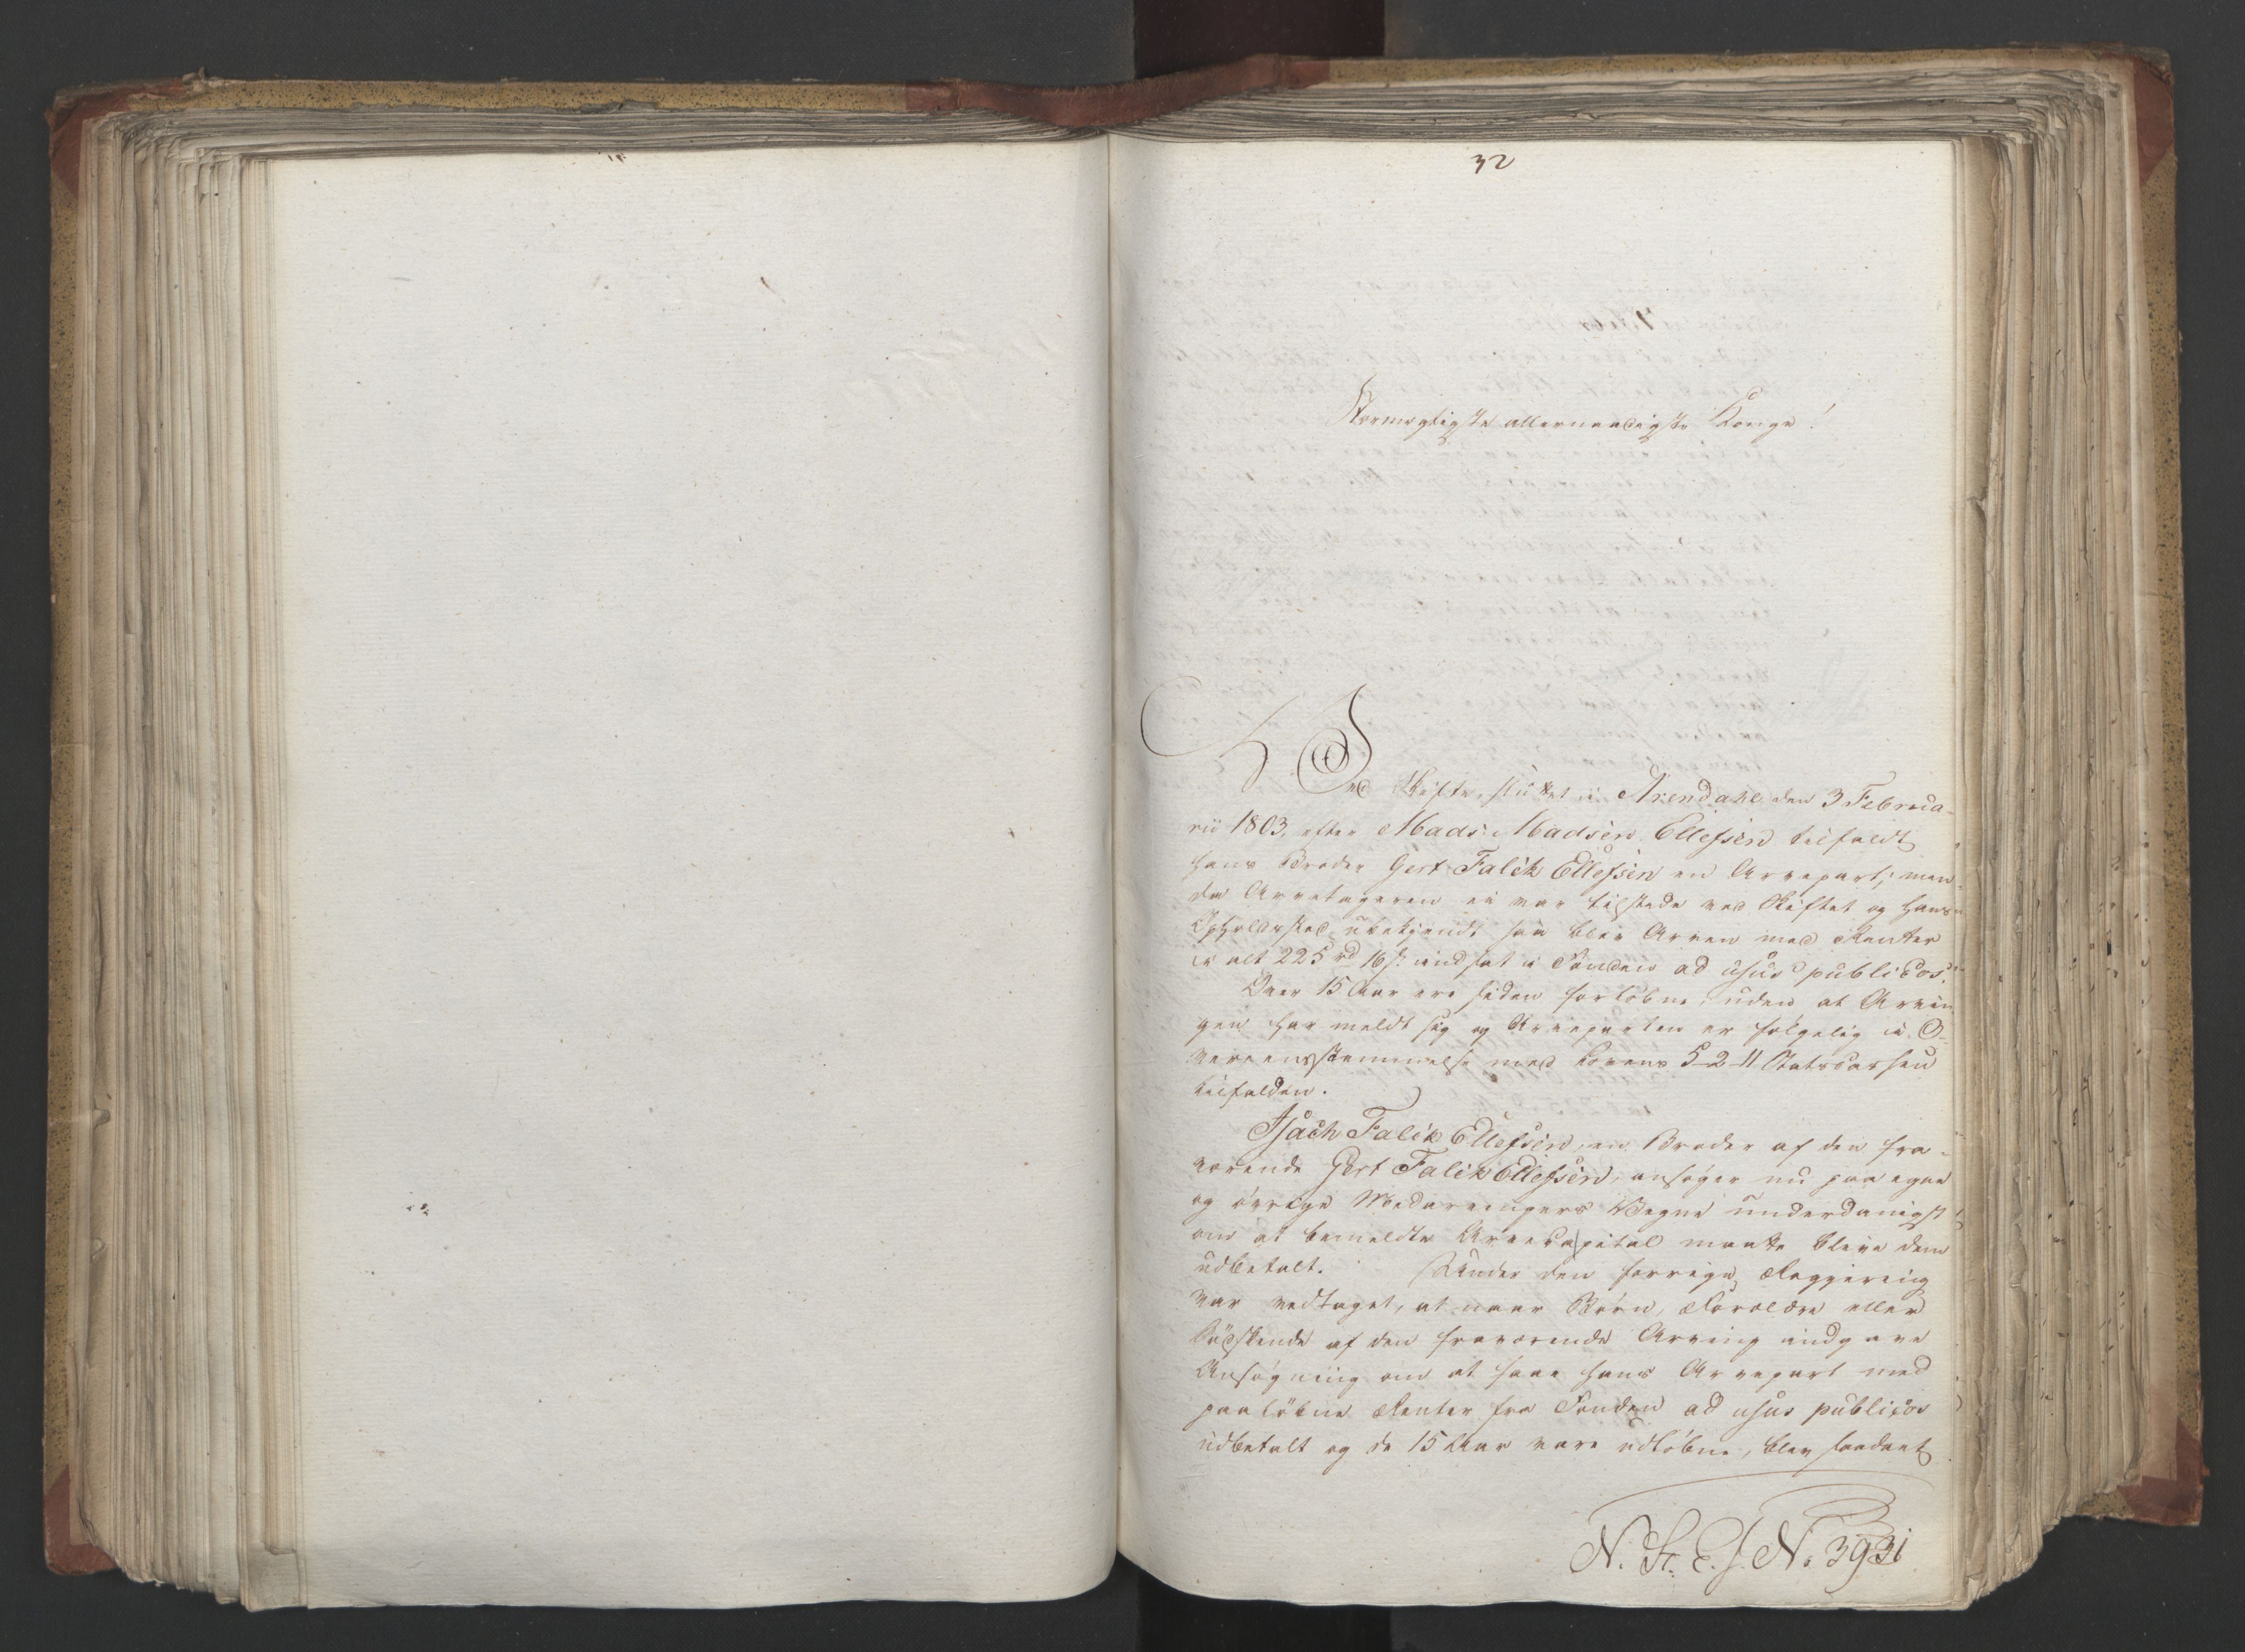 32
Stormægtigste allernaadigste Konge!
Ved Skifte, sluttet i Arendahl den 3 Februa-
rii 1803, efter Mads Madsen Ellefsen tilfaldt
hans Broder Gert Falck Ellefsen en Arvepart; men
da Arvetageren ei var tilstede ved Skiftet og hans
Opholdssted ubekjendt saa blev Arven med Renter
i alt 225 rd 16 s. indsat i Fonden ad usus publicos.
Over 15 Aar ere siden forløbne, uden at Arvin
gen har meldt sig og Arveparten er følgelig i O-
vereensstemmelse med Lovens 5-2-11 Statscassen
tilfalden.
Isach Falck Ellefsen, en Broder af den fra-
værende Gert Falck Ellefsen, ansøger nu paa egne
og øvrige Medarvingers Vegne underdanigst
om at bemeldte Arvecapital maatte blive dem
udbetalt. Under den forrige Regjering
var vedtaget, at naar Børn, Forældre eller
Sødskende af den fraværende Arving indgave
Ansøgning om at faae hans Arvepart med
paaløbne Renter fra Fonden ad usus publicos
udbetalt og de 15 Aar vare udløbne, blev saadant
N. St. E. J. N. 3931